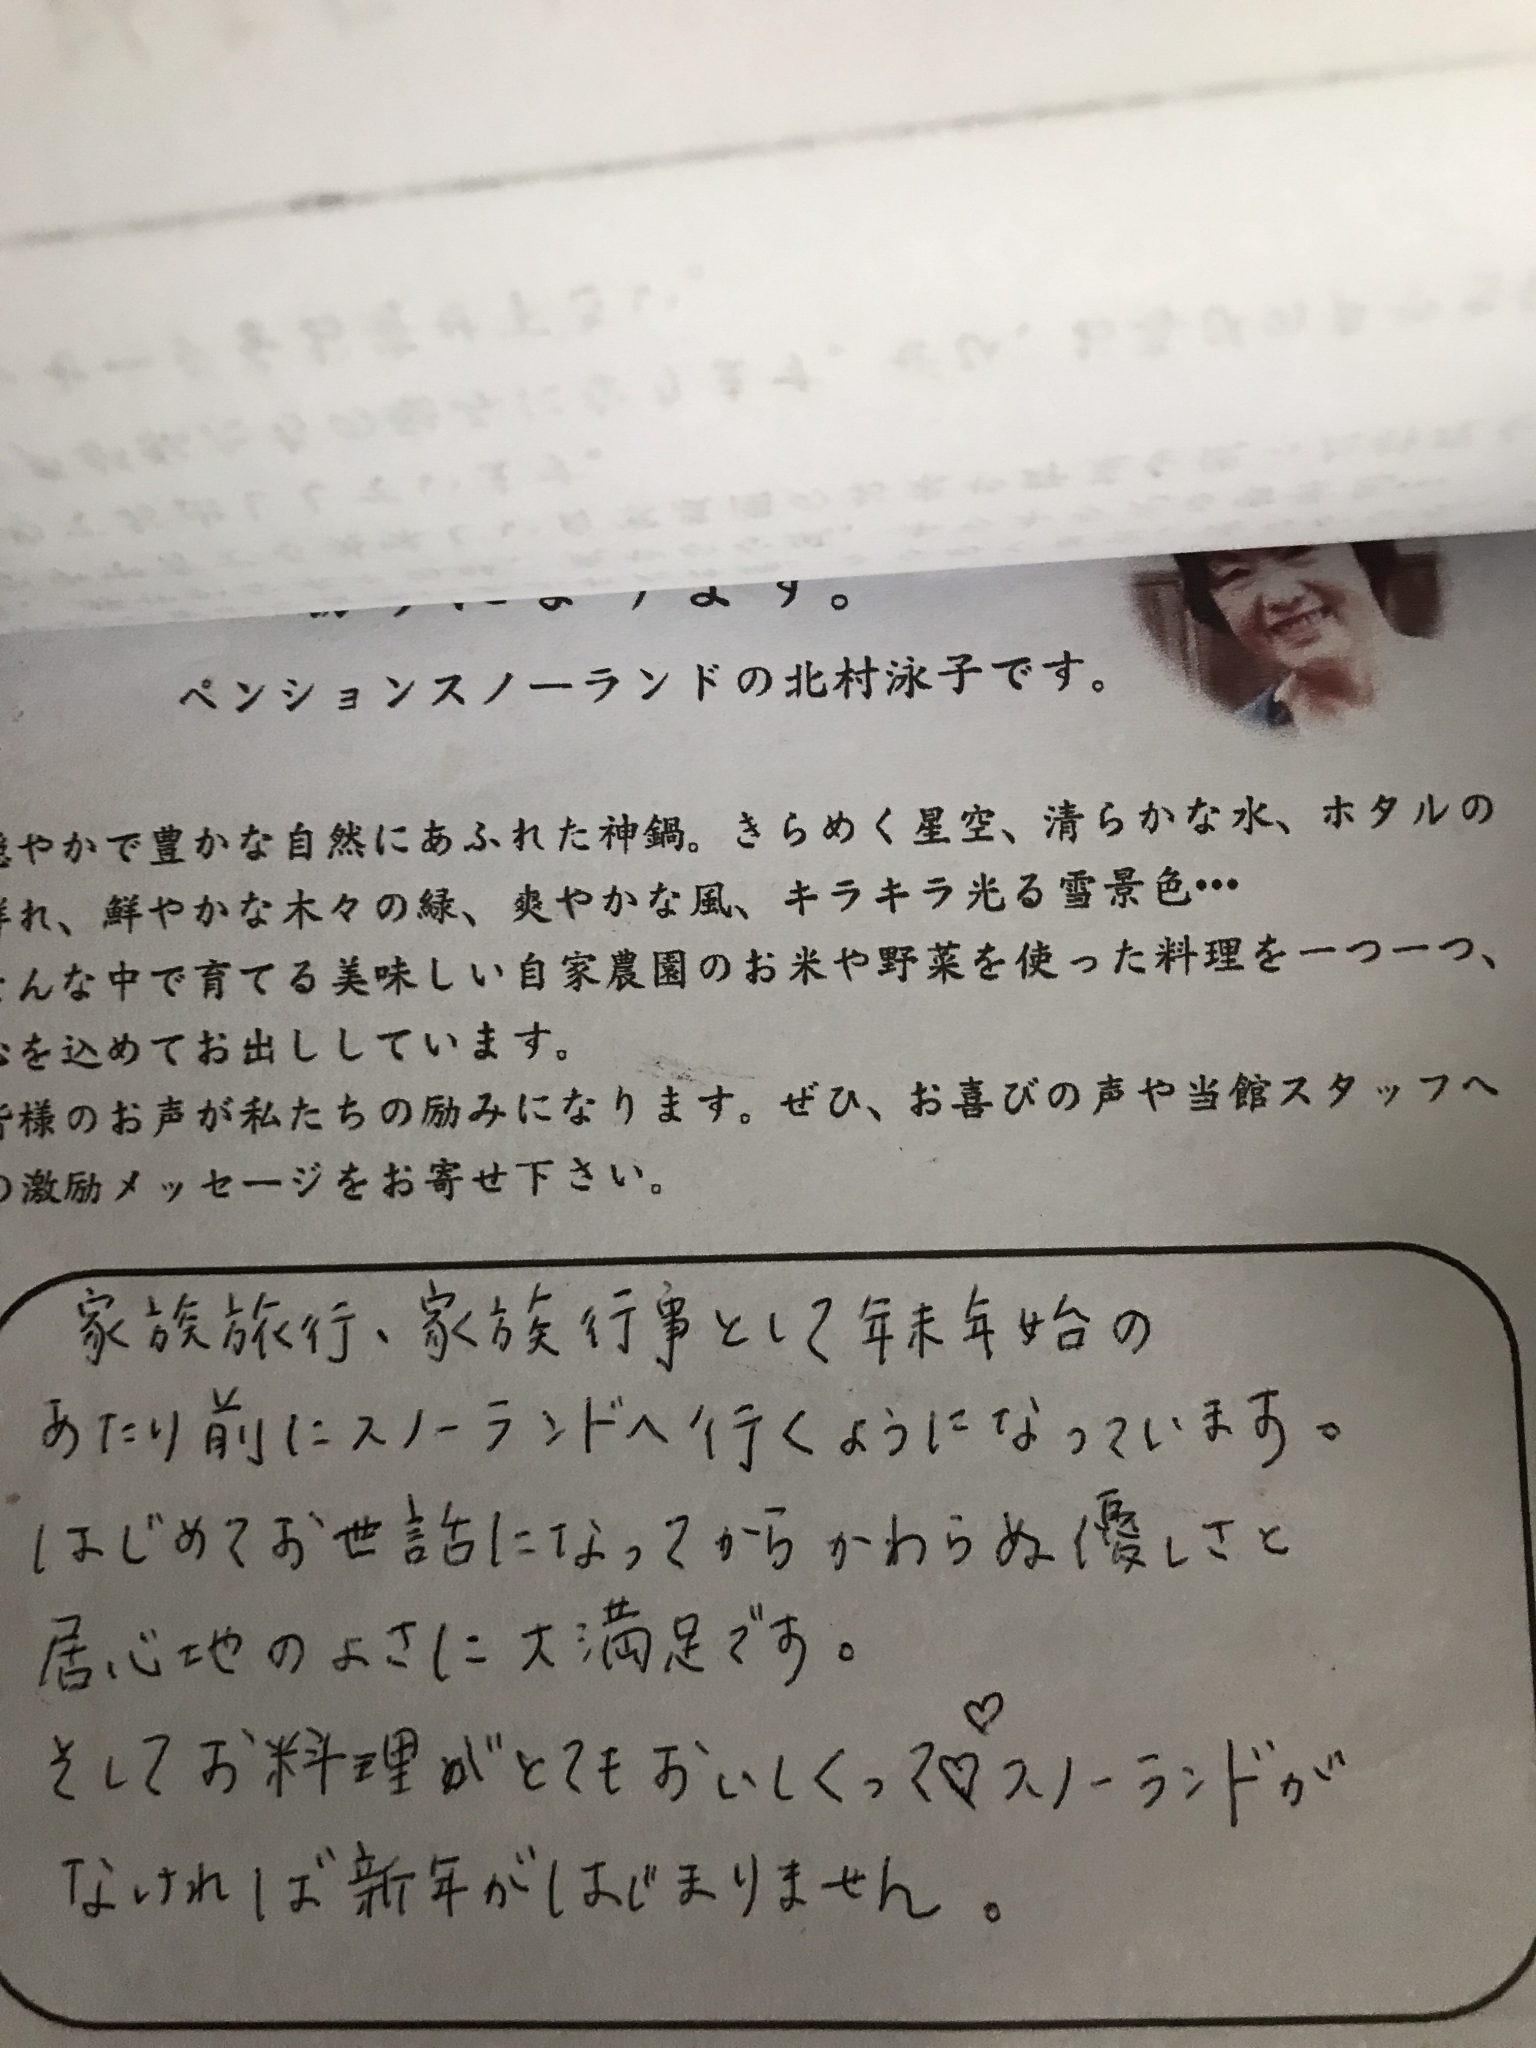 ペンションスノーランドの北村泳子です。
やかで豊かな自然にあふれた神鍋。きらめく星空、清らかな水、ホタルの
れ、鮮やかな木々の緑、爽やかな風、キラキラ光る雪景色…
んな中で育てる美味しい自家農園のお米や野菜を使った料理を一つ一つ、
を込めてお出ししています。
様のお声が私たちの励みになります。ぜひ、お喜びの声や当館スタッフへ
の激励メッセージをお寄せ下さい。
家族旅行、家族行事として年末年始の
あたり前にスノーランドへ行くようになっています。
はじめてお世話になってからかわらぬ優しさと
居心地のよさに大満足です。
そしてお料理がとてもおいしくって♡♡スノーランドが
なければ新年がはじまりません。